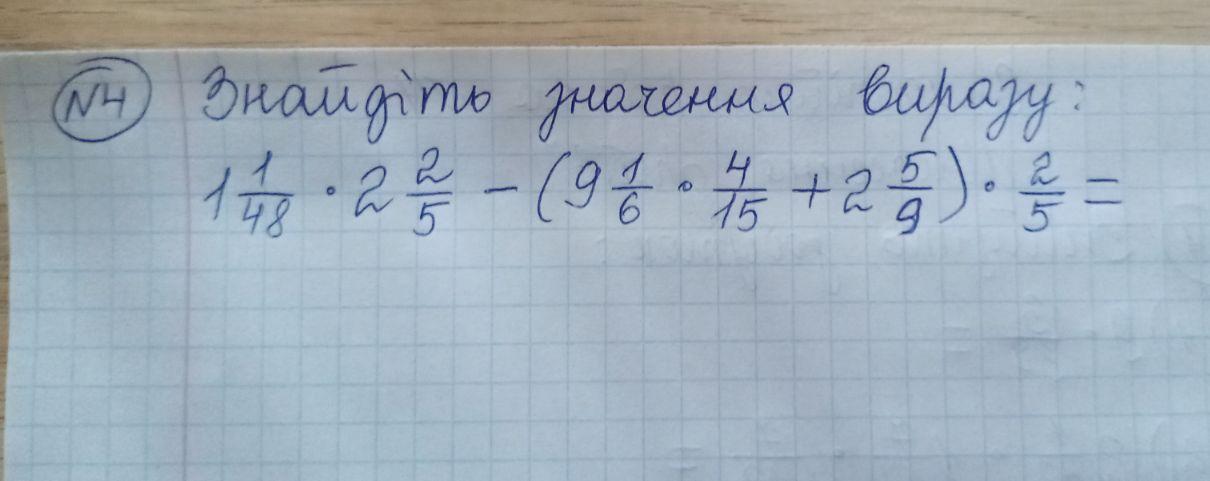 №4 Знайдіть значення виразу:
1 1/48 · 2 2/5 - (9 1/6 · 4/15 + 2 5/9) · 2/5 =